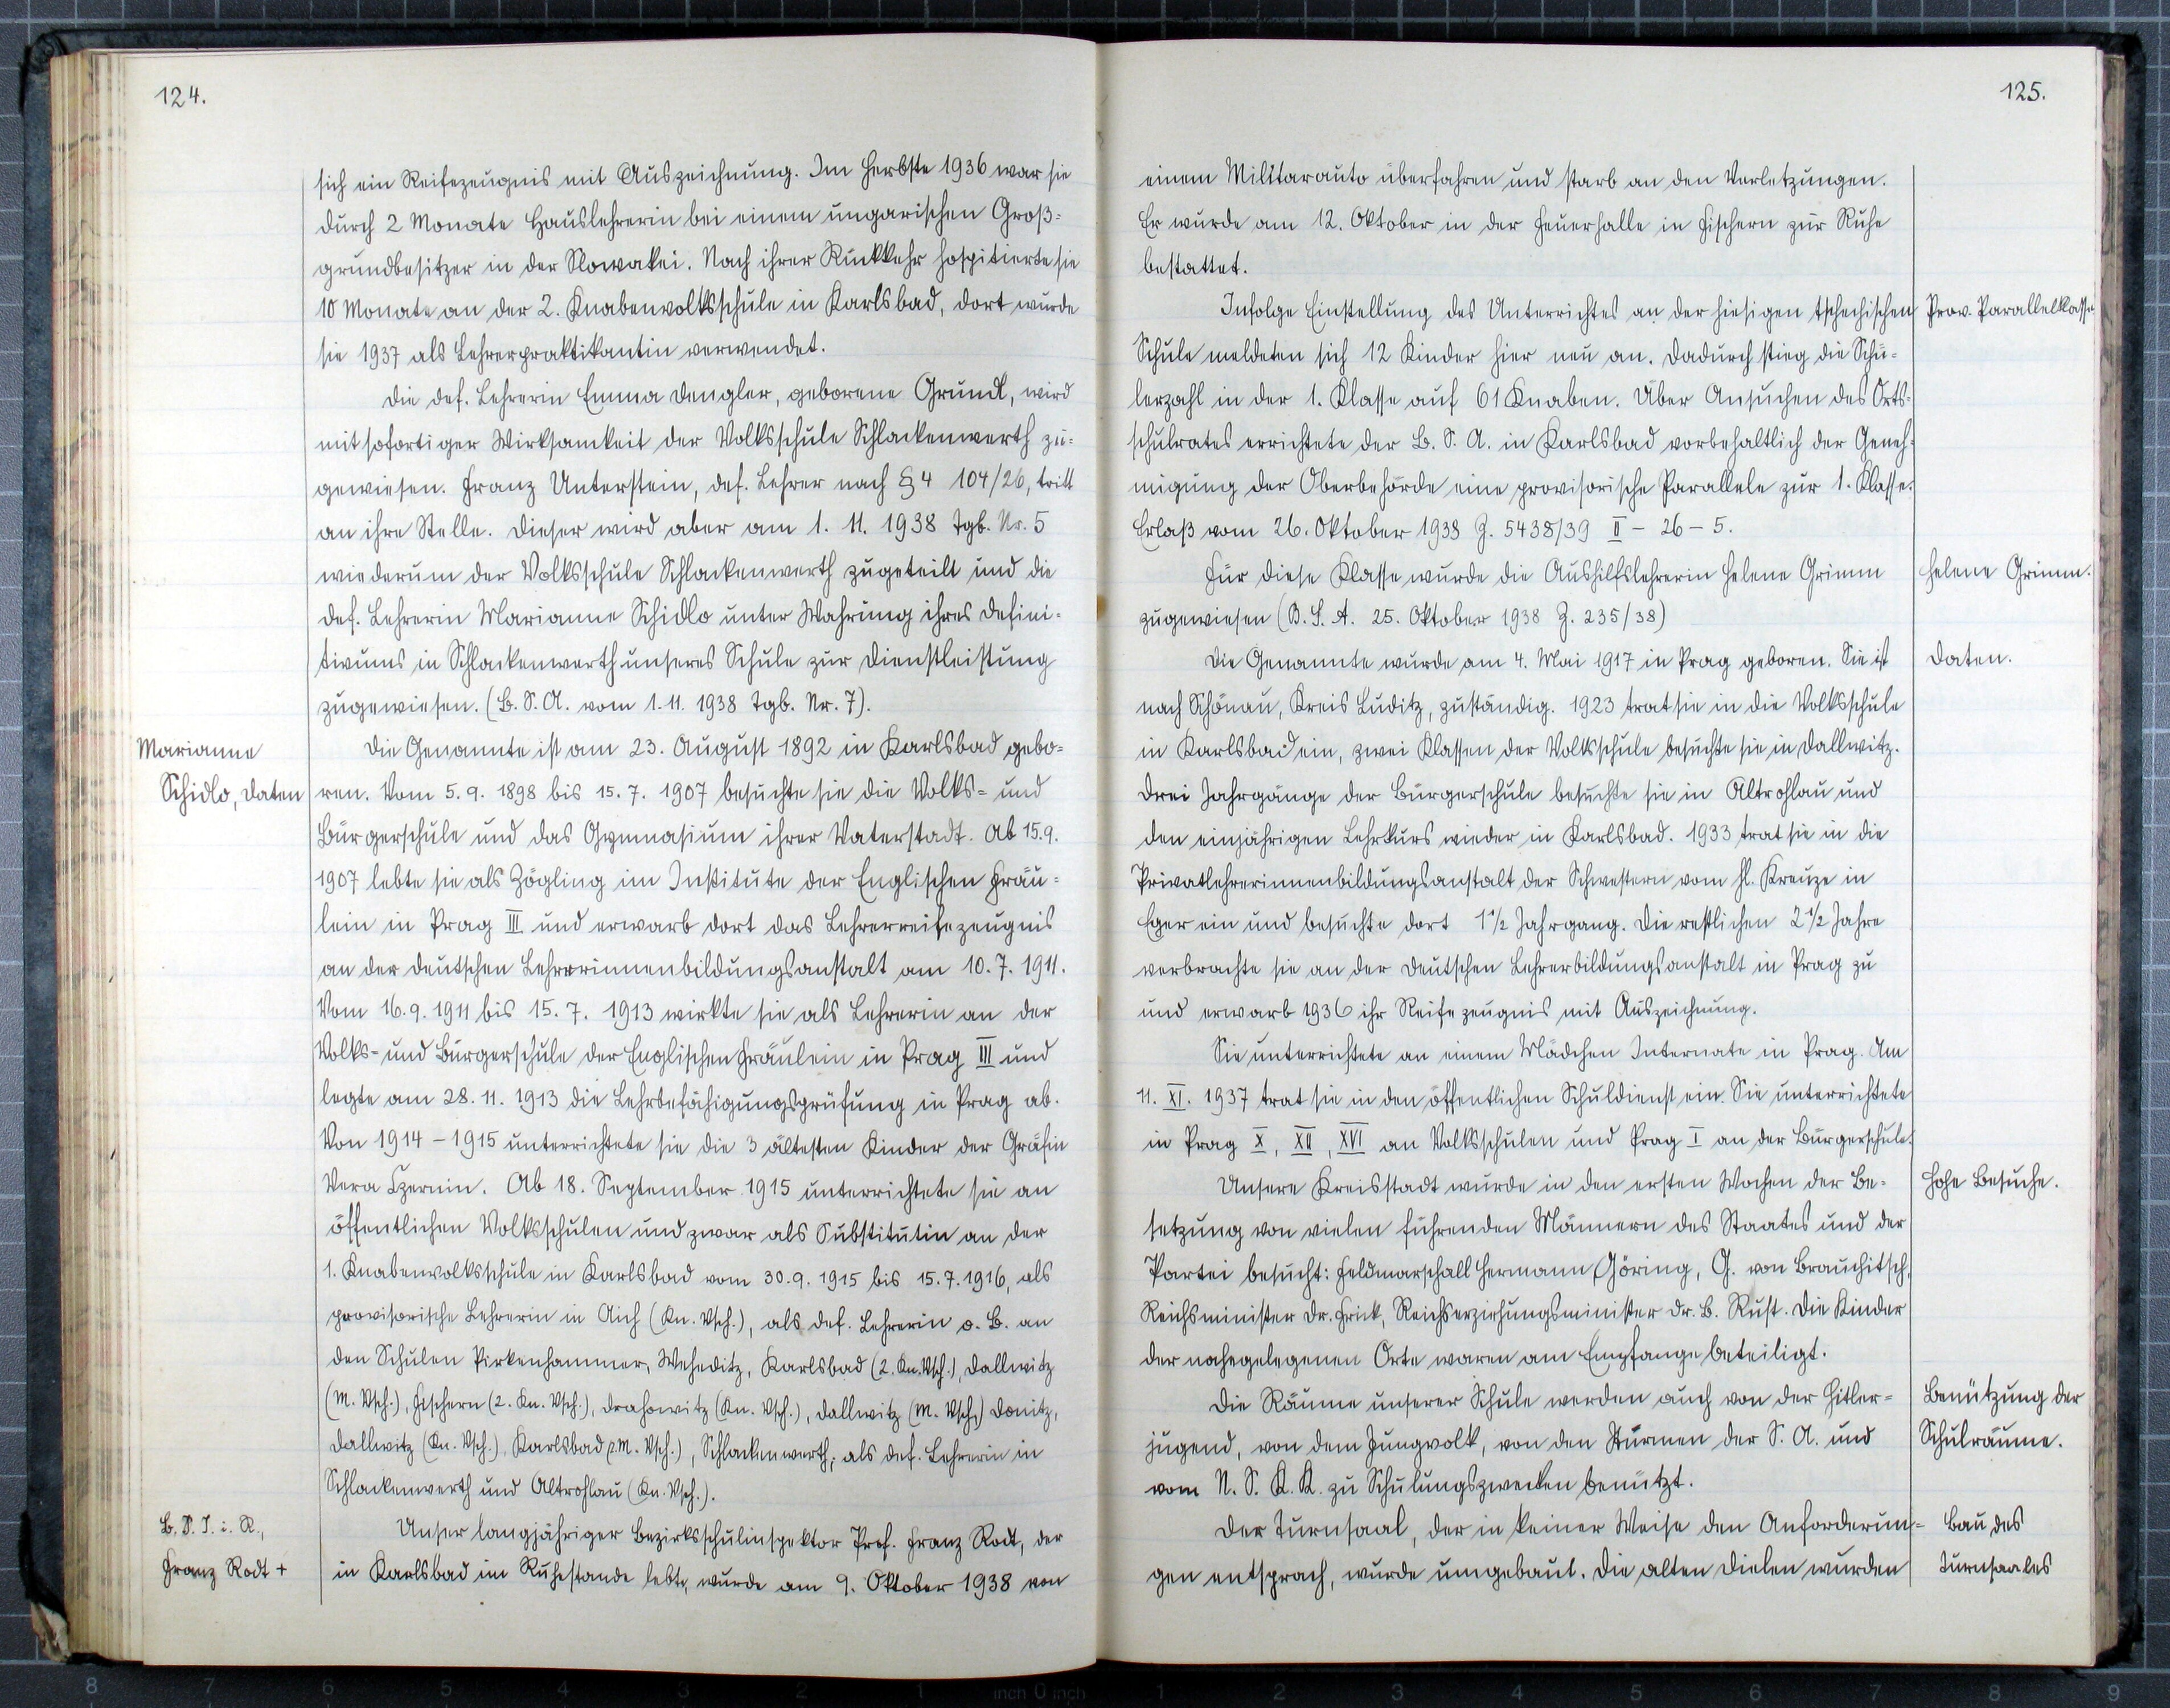 124.
sich ein Reifezeugnis mit Auszeichnung. Im Herbste 1936 war sie
durch 2 Monate Hauslehrerin bei einem ungarischen Groß-
grundbesitzer in der Slowakei. Nach ihrer Rückkehr hospitierte sie
10 Monate an der 2. Knabenvolksschule in Karlsbad, dort wurde
sie 1937 als Lehrerpraktikantin verwendet.
Die def. Lehrerin Emma Dengler, geborene Grundl, wird
mit sofortiger Wirksamkeit der Volksschule Schlackenwerth zu-
gewiesen. Franz Unterstein, def. Lehrer nach § 4 104/26, tritt
an ihre Stelle. Dieser wird aber am 1. 11. 1938 Tgb. Nr. 5
wiederum der Volksschule Schlackenwerth zugeteilt und die
def. Lehrerin Marianne Schidlo unter Wahrung ihres Defini-
tivums in Schlackenwerth unseres Schule zur Dienstleistung
zugewiesen. (B. S. A. vom 1. 11. 1938 Tgb. Nr. 7).
Marianne
Schidlo, Daten
Die Genannte ist am 23. August 1892 in Karlsbad gebo-
ren. Vom 5. 9. 1898 bis 15. 7. 1907 besuchte sie die Volks- und
Bürgerschule und das Gymnasium ihrer Vaterstadt. Ab 15. 9.
1907 lebte sie als Zögling im Institute der Englischen Fräu-
lein in Prag III und erwarb dort das Lehrerreifezeugnis
an der deutschen Lehrerinnenbildungsanstalt am 10. 7. 1911.
Vom 16. 9. 1911 bis 15. 7. 1913 wirkte sie als Lehrerin an der
Volks- und Bürgerschule der Englischen Fräulein in Prag III und
legte am 28. 11. 1913 die Lehrbefähigungsprüfung in Prag ab.
Von 1914 - 1915 unterrichtete sie die 3 ältesten Kinder der Gräfin
Vera Czernin. Ab 18. September 1915 unterrichtete sie an
öffentlichen Volksschulen und zwar als Substitutin an der
1. Knabenvolksschule in Karlsbad vom 30. 9. 1915 bis 15. 7. 1916, als
provisorische Lehrerin in Aich (Kn. Vsch.), als def. Lehrerin o. B. an
den Schulen Pirkenhammer, Weheditz, Karlsbad (2. Kn. Vsch.), Dallwitz
(M. Vsch.), Fischern (2. Kn. Vsch.), Drahowitz (Kn. Vsch.), Dallwitz (M. Vsch.) Donitz,
Dallwitz (Kn. Vsch.), Karlsbad (2. M. Vsch.), Schlackenwerth, als def. Lehrerin in
Schlackenwerth und Altrohlau (Kn. Vsch.).
B. S. I. i. R.,
Franz Rodt +
Unser langjähriger Bezirksschulinspektor Prof. Franz Rodt, der
in Karlsbad im Ruhestande lebte, wurde am 9. Oktober 1938 von
125.
einem Militärauto überfahren und starb an den Verletzungen.
Er wurde am 12. Oktober in der Feuerhalle in Fischern zur Ruhe
bestattet.
Infolge Einstellung des Unterrichtes an der hiesigen tschechischen
Prov. Parallelklasse
Schule meldeten sich 12 Kinder hier neu an. Dadurch stieg die Schü-
lerzahl in der 1. Klasse auf 61 Knaben. Über Ansuchen des Orts-
schulrates errichtete der B. S. A. in Karlsbad vorbehaltlich der Geneh-
migung der Oberbehörde eine provisorische Parallele zur 1. Klasse.
Erlaß vom 26. Oktober 1938 Z. 5438/39 II - 26 - 5.
Für diese Klasse wurde die Aushilfslehrerin Helene Grimm
Helene Grimm.
zugewiesen (B. S. A. 25. Oktober 1938 Z. 235/38)
Die Genannte wurde am 4. Mai 1917 in Prag geboren. Sie ist
Daten.
nach Schönau, Kreis Luditz, zuständig. 1923 trat sie in die Volksschule
in Karlsbad ein, zwei Klassen der Volksschule besuchte sie in Dallwitz.
Drei Jahrgänge der Bürgerschule besuchte sie in Altrohlau und
den einjährigen Lehrkurs wieder in Karlsbad. 1933 trat sie in die
Privatlehrerinnenbildungsanstalt der Schwestern vom hl. Kreuze in
Eger ein und besuchte dort 1 1/2 Jahrgang. Die restlichen 2 1/2 Jahre
verbrachte sie an der deutschen Lehrerbildungsanstalt in Prag zu
und erwarb 1936 ihr Reifezeugnis mit Auszeichnung.
Sie unterrichtete an einem Mädchen Internate in Prag. Am
11. XI. 1937 trat sie in den öffentlichen Schuldienst ein. Sie unterrichtete
in Prag X, XII, XVI an Volksschulen und Prag I an der Bürgerschule.
Unsere Kreisstadt wurde in den ersten Wochen der Be-
Hohe Besuche.
setzung von vielen führenden Männern des Staates und der
Partei besucht: Feldmarschall Hermann Göring, G. von Brauchitsch,
Reichsminister Dr. Frick, Reichserziehungsminister Dr. B. Rust. Die Kinder
der nahegelegenen Orte waren am Empfange beteiligt.
Die Räume unserer Schule werden auch von der Hitler-
Benützung der
jugend, von dem Jungvolk, von den Stürmen der S. A. und
Schulräume.
vom N. S. K. K. zu Schulungszwecken benützt.
Der Turnsaal, der in keiner Weise den Anforderun-
Bau des
gen entsprach, wurde umgebaut. Die alten Dielen wurden
Turnsaales
8 7 6 5 4 3 2 1 inch 0 inch 1 2 3 4 5 6 7 8 9